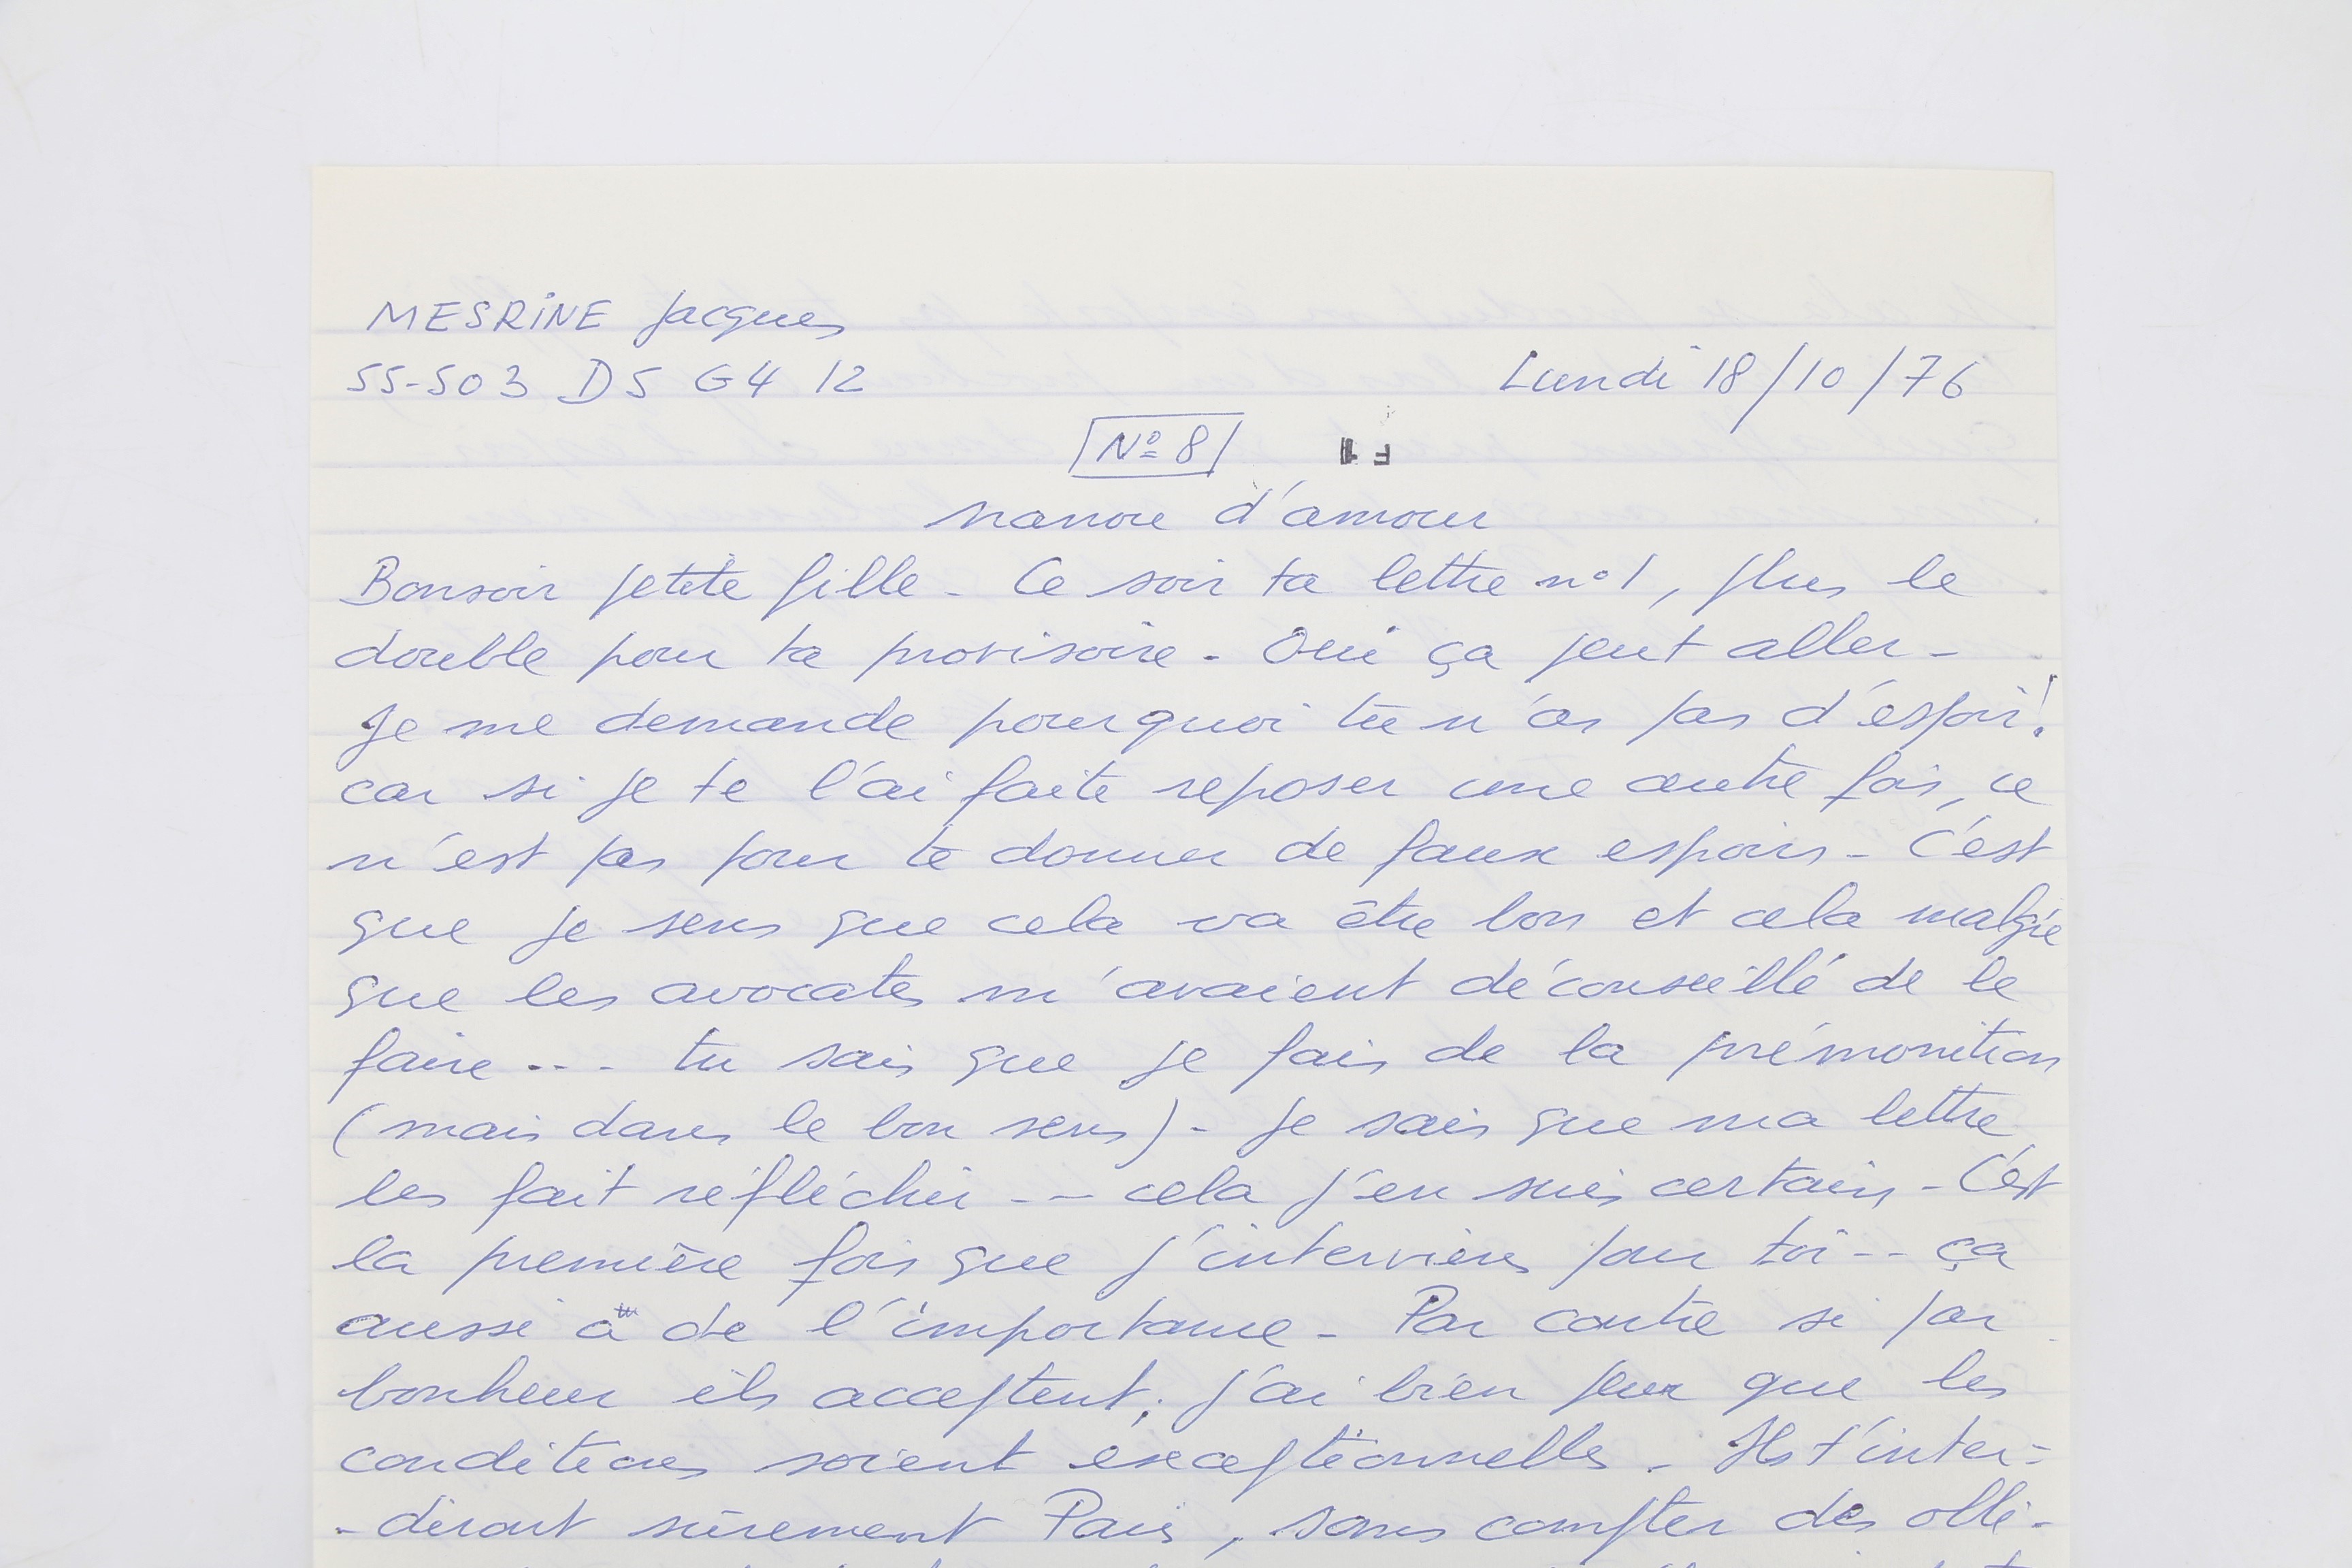 MESRINE Jacques
55-503 D5 G4 12
Lundi 18/10/76
N° 8
F 1
nanou d'amour
Bonsoir petite fille - Ce soir ta lettre n°1, plus le
double pour ta provisoire - Oui ça peut aller -
Je me demande pourquoi tu n'as pas d'espoir!
car si je te l'ai faite reposer une autre fois, ce
n'est pas pour te donner de faux espoirs - C'est
que je sens que cela va être bon et cela malgré
que les avocates m'avaient déconseillé de le
faire... tu sais que je fais de la prémonition
(mais dans le bon sens) - je sais que ma lettre
les fait réfléchir -- cela j'en suis certain - C'est
la première fois que j'interviens pour toi -- ça
aussi a de l'importance - Par contre si par
bonheur ils acceptent, j'ai bien peur que les
conditions soient exceptionnelles - Ils t'inter-
-diront sûrement Paris, sans compter des obli-